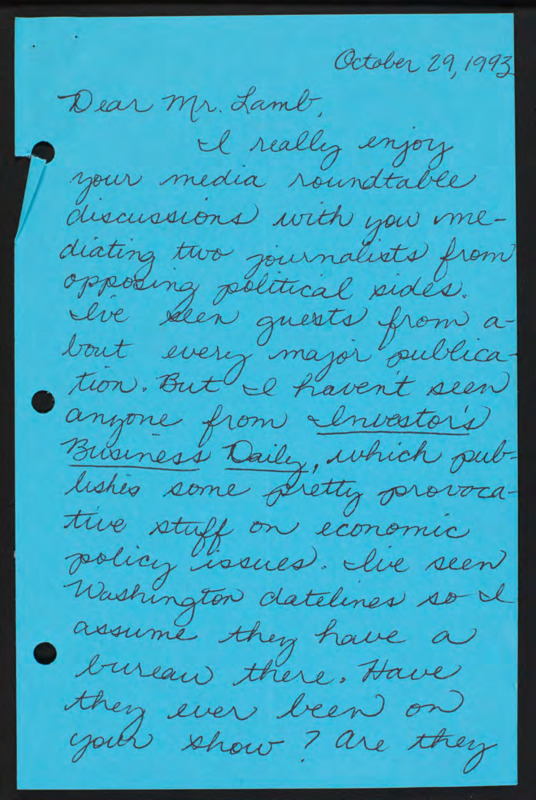 October 29, 1993
Dear Mr. Lamb,
I really enjoy
your media roundtable
discussions with you me-
diating two journalists from
opposing political sides.
I've seen guests from a-
bout every major publica-
tion. But I haven't seen
anyone from Investor's
Business Daily, which pub-
lishes some pretty provoca-
tive stuff on economic
policy issues. I've seen
Washington datelines so I
assume they have a
bureau there. Have
they ever been on
your show? Are they